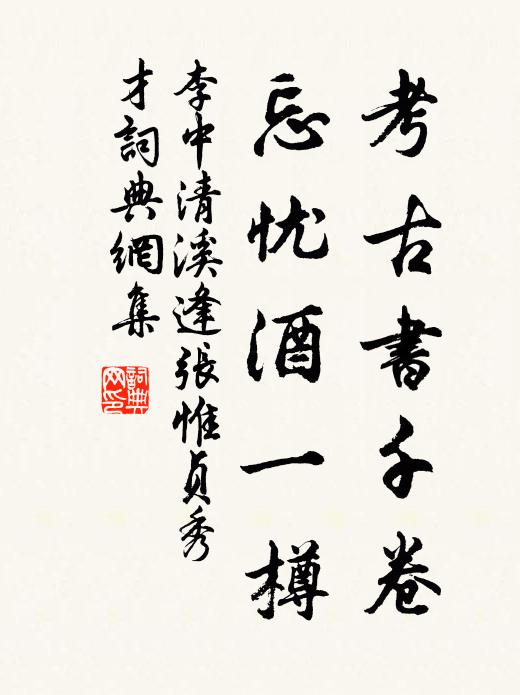 考古書千卷
忘忧酒一樽
李中清溪逢張惟貞秀
才詞典網集
詞典网印